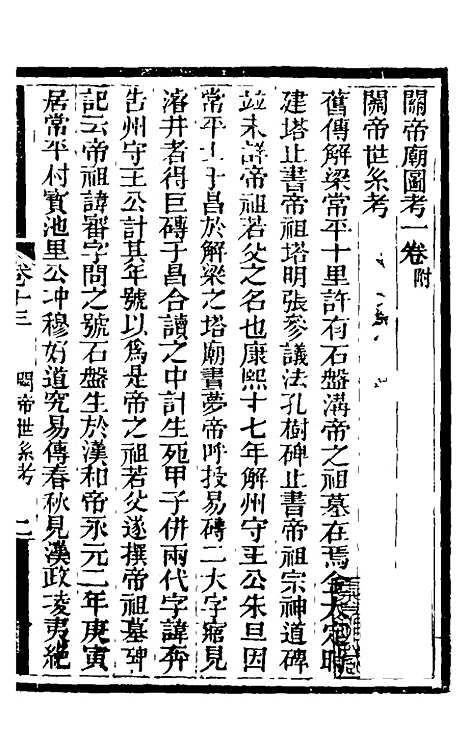 關帝廟圖考一卷附
關帝世系考
舊傳解梁常平十里許有石盤溝帝之祖墓在焉金大定時
建塔止書帝祖塔明張參議法孔樹碑止書帝祖宗神道碑
竝未詳帝祖若父之名也康熙十七年解州守王公朱旦因
常平士于昌於解梁之塔廟書夢帝呼授易磚二大字寤見
濬井者得巨磚于昌合讀之中計生死甲子併兩代字諱奔
告州守王公計其年號以為是帝之祖若父遂撰帝祖墓碑
記云帝祖諱審字問之號石盤生於漢和帝永元二年庚寅
居常平村寶池里公冲穆好道究易傳春秋見漢政凌夷絕
卷十三
關帝世系考
二